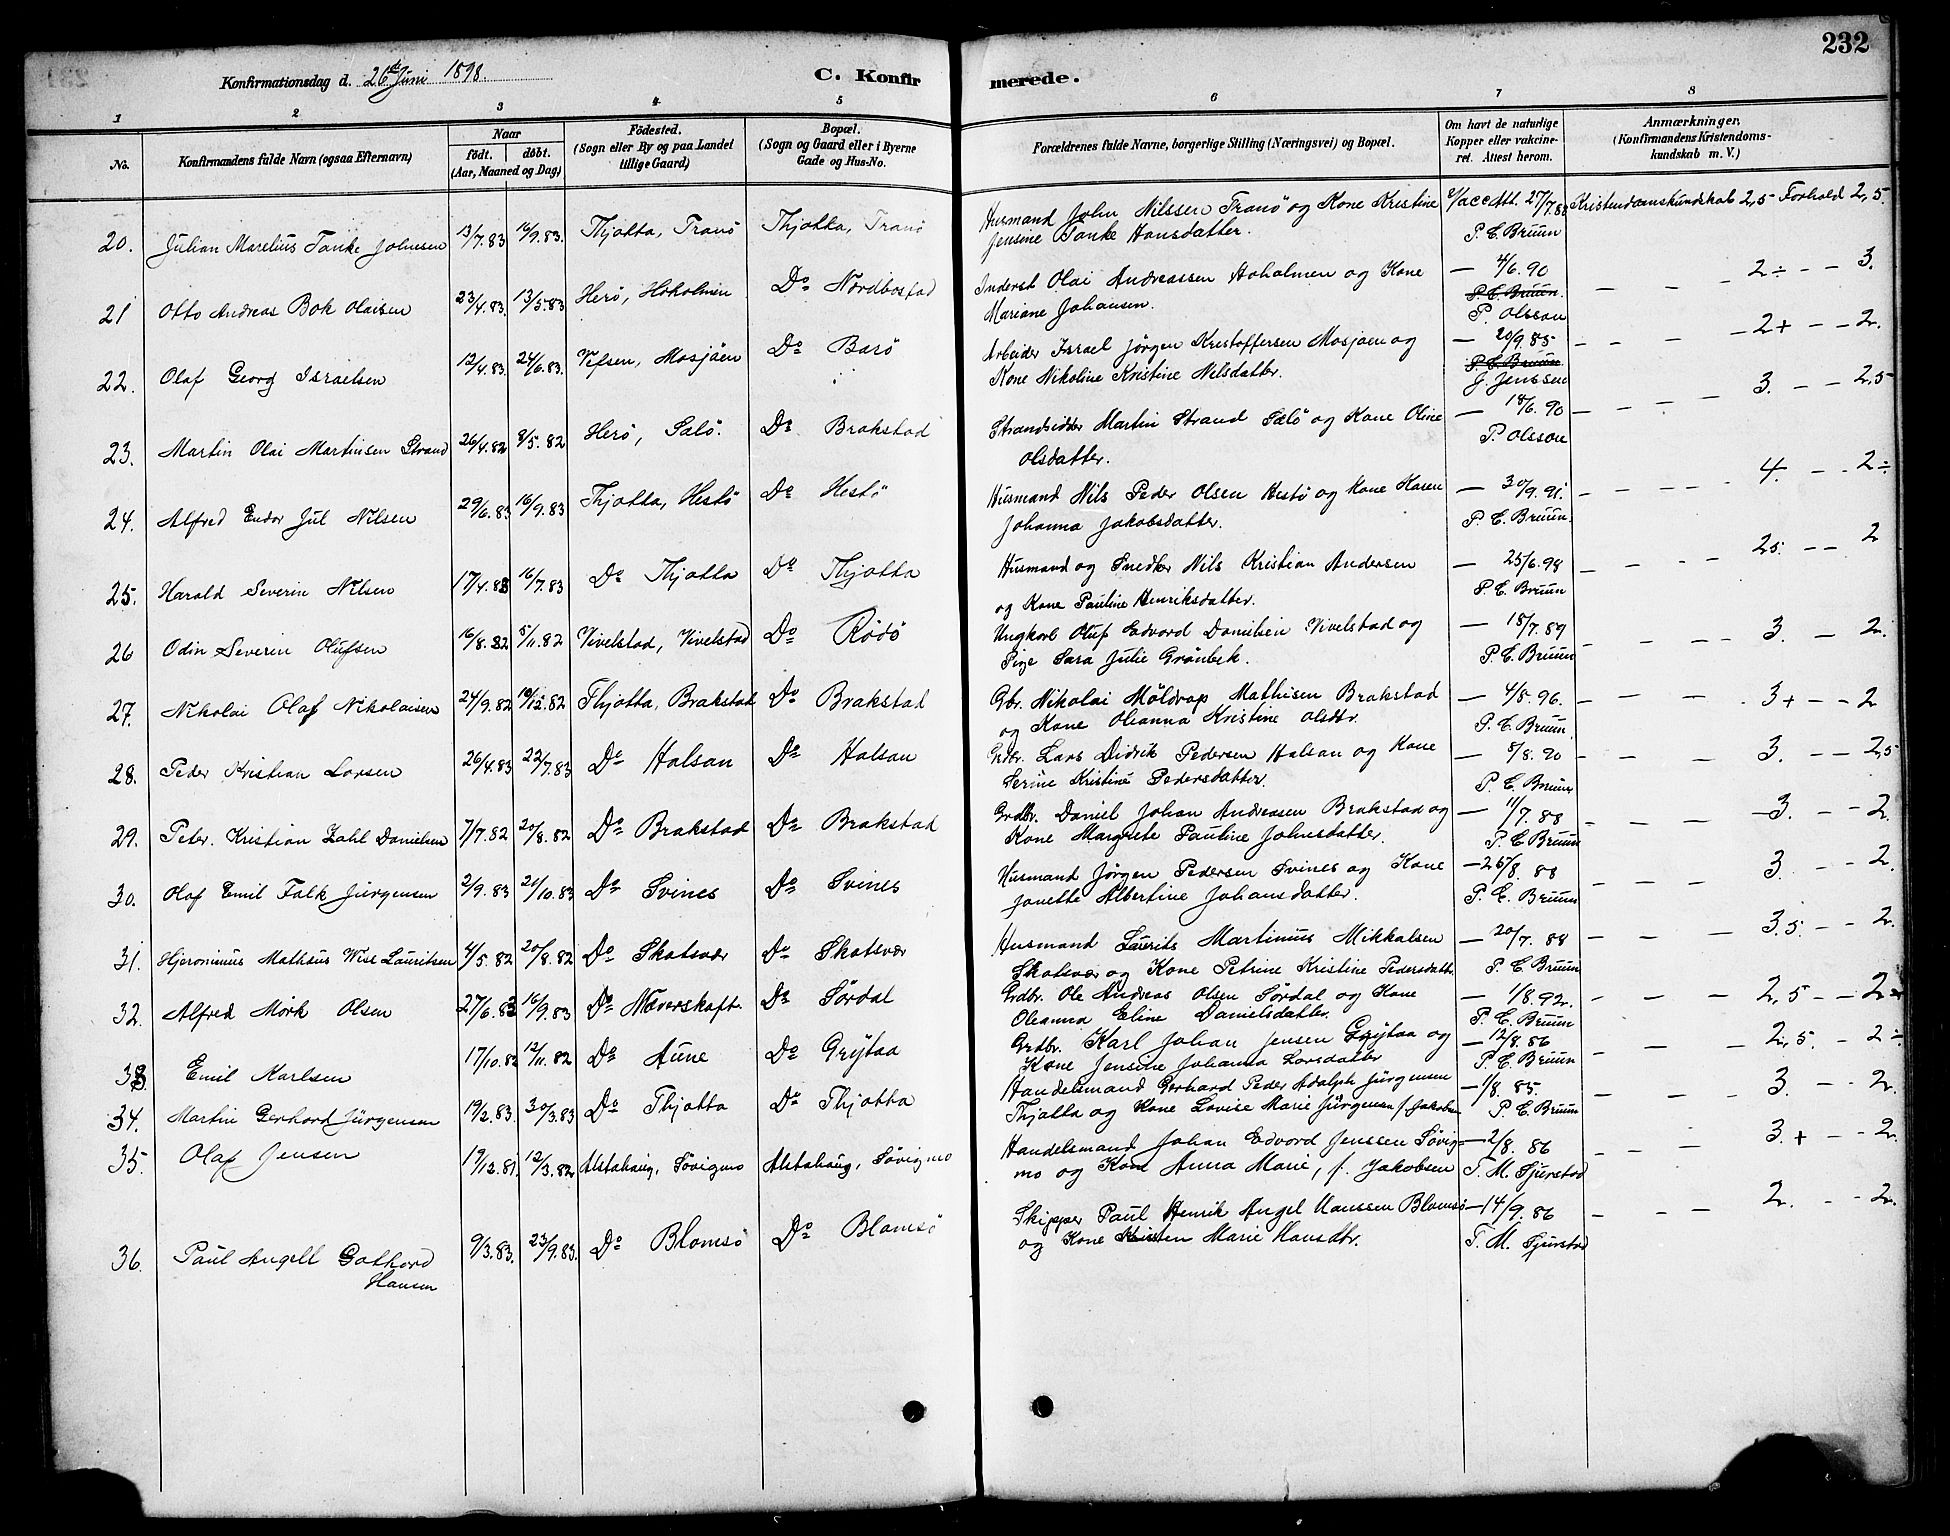 232
Konfirmationsdag d. 26de Juni 1898
C. Konfirmerede.
1 2 3 4 5 6 7 8
No. Konfirmandens fulde Navn (ogsaa Efternavn) Naar født. døbt. (Aar, Maaned og Dag) Födested. (Sogn eller By og paa Landet tillige Gaard) Bopæl. (Sogn og Gaard eller i Byerne Gade og Hus-No. Forældrenes fulde Navne, borgerlige Stilling (Næringsvei) og Bopæl. Om havt de naturlige Kopper eller vaccineret. Attest herom. Anmærkninger, (Konfirmandens Kristendomskundskab m. V.)
20. Julian Marelius Tanke Johnsen 13/7.83 16/9.83. Thjøtta, Tranö Thjøtta, Tranö Husmand John Nilssen Tranö og Kone Kristine v/acc Att. 27/7.88 Kristendomskundskab 2,5 Forhold 2,5
Jensine Tanke Hansdatter. P. C. Bruun
21 Otto Andreas Bok Olaisen 23/4.83. 13/5.83 Herö, Hoholmen Do Nordbostad Inderst Olai Andreassen Hoholmen og Kone — 4/6.90 — — — 2÷ - - 3.
Mariane Johansen. P. C. Bruun.
P. Olsson
22. Olaf Georg Israelsen 12/4.83. 24/6.83. Vefsen, Mosjöen Do Barö Arbeider Israel Jörgen Kristoffersen Mosjøen og — 20/9.85 — — — 2+ - - 2.
Kone Nikoline Kristine Nilsdatter. P. C. Bruun
J. Jenssen
23. Martin Olai Martinsen Strand 26/4.82 8/5.82 Herö, Salö. Do Brakstad Strandsidder Martin Strand Salö og Kone Oline — 18/6.90 — — — 3. - - 2,5
Olsdatter. P. Olsson
24. Alfred Endor Jul Nilsen 29/6.83 16/9.83 Thjøtta, Hestö Do Hestö Husmand Nils Peder Olsen Hestö og Kone Karen — 30/9.91. — — — 4. - - 2÷
Johanna Jakobsdatter. P. C. Bruun.
25. Harald Severin Nilsen 17/4.83 16/7.83 Do Thjøtta Do Thjøtta Husmand og Snedker Nils Kristian Andersen — 25/6.98 — — — 2,5. - - 2
og Kone Pauline Henriksdatter. P. C. Bruun
26 Odin Severin Olufsen 16/8.82 5/11.82 Vivelstad, Vivelstad Do Rödö Ungkarl Oluf Edvard Danielsen Vivelstad og — 18/7.89 — — — 3. - 2.
Pige Sara Julie Grönbek. P. C. Bruun
27. Nikolai Olaf Nikolaisen 24/9.82 10/12.82 Thjøtta, Brakstad Do Brakstad Gbr. Nikolai Möldrop Mathisen Brakstad — 4/8.96. — — — 3+ - - 2
og Kone Oleanna Kristine Olsdtr. P. C. Bruun.
28. Peder Kristian Larsen 26/4.83 22/7.83 Do Halsan Do Halsan Grdbr. Lars Didrik Pedersen Halsan og Kone — 8/8.90 — — — 3. - - 2,5
Serine Kristine Pedersdatter. P. C. Bruun
29. Peter. Kristian Zahl Danielsen 7/7.82 20/8.82 Do Brakstad Do Brakstad Grdbr. Daniel Johan Andreasen Brakstad og — 11/7.88 — — — 3. - - 2.
Kone Margrete Pauline Johnsdatter. P. C Bruun
30. Olaf Emil Falk Jürgensen 2/9.83 21/10.83 Do Svines Do Svines Husmand Jörgen Pedersen Svines og Kone — 26/8.88 — — — 3. - - 2.
Janette Albertine Johansdatter. P. C. Bruun
31. Hjeronimus Mathæus Wise Lauritsen 4/5.82 20/8.82 Do Skatsvær Do Skatsvær Husmand Laurits Martinius Mikkalsen — 20/7.88 — — — 3.5. - - 2.
Skatsvær og Kone Petrine Kristine Pedersdatter P. C. Bruun
32. Alfred Mörk Olsen 27/6.83 16/9.83 Do Næverskaft. Do Sördal Grdbr. Ole Andreas Olsen Sördal og Kone — 1/8.92. — — — 2,5 - - 2
Oleanna Eline Danielsdatter. P. C. Bruun
33. Emil Karlsen 17/10.82 12/11.82 Do Aune Do Grytaa Grdbr. Karl Johan Jensen Grytaa og — 12/8.86 — — — 2,5. - 2÷
Kone Jensine Johanna Larsdatter P. C. Bruun
34. Martin Gerhard Jürgensen 19/2.83. 30/3.83 Do Thjøtta Do Thjøtta Handelsmand Gerhard Peder Adolph Jürgensen — 1/8 85. — — — 3. - - 2.
Thjøtta og Kone Lovise Marie Jürgensen f. Jakobsen P. C. Bruun
35. Olaf Jensen 19/12.81. 12/3.82 Alstahaug, Sövigmo Alstahaug, Sövigmo Handelsmand Johan Edvard Jenssen Sövig- — 2/8.86 — — — 3.+ - - 2.
mo og Kone Anna Marie, f. Jakobsen T. M. Sjurstad
36. Paul Angell Gothard Hansen 9/3.83. 23/9.83. Do Blomsö Do Blomsö Skipper Paul Henrik Angel Hanssen Blomsö — 14/9.86 — — — 2. - - 2.
og Kone Kirsten Marie Hansdtr. T. M. Sjurstad